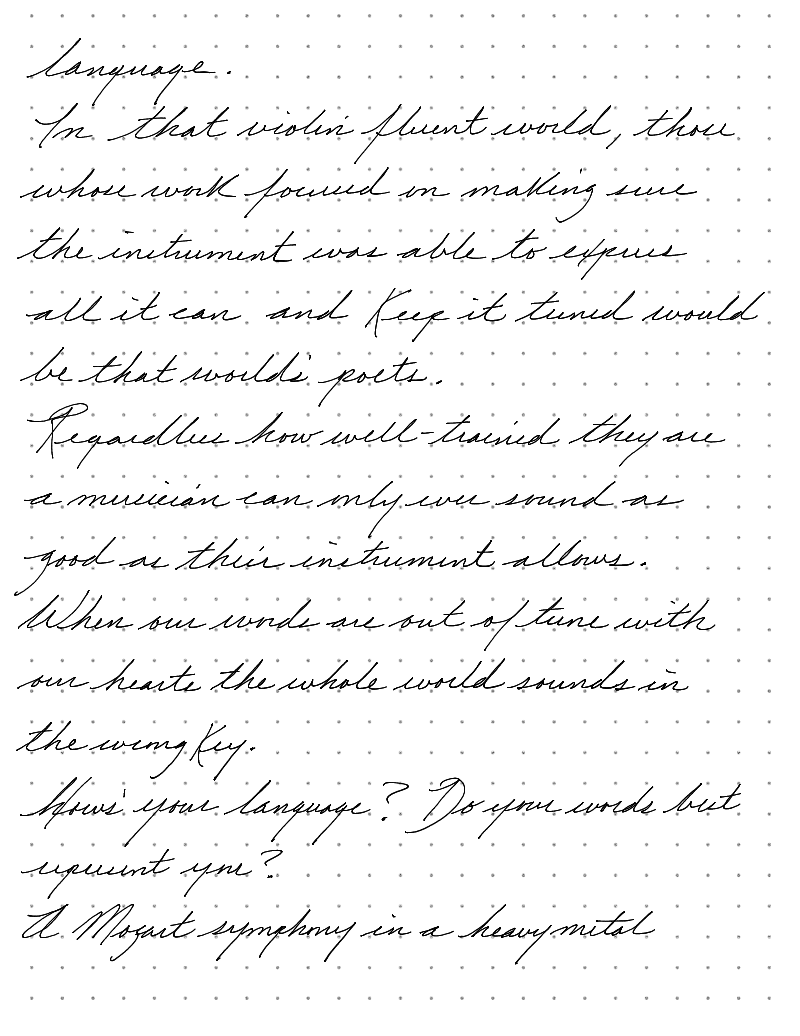 language.
In that violin fluent world, those
whose work focused on making sure
the instrument was able to express
all it can and Keep it tuned would
be that world's poets.
Regardless how well-trained they are
a musician can only ever sound as
good as their instrument allows.
When our words are out of tune with
our hearts the whole world sounds in
the wrong Key.
How's your language? Do your words best
represent you?
A Mozart symphony in a heavy metal